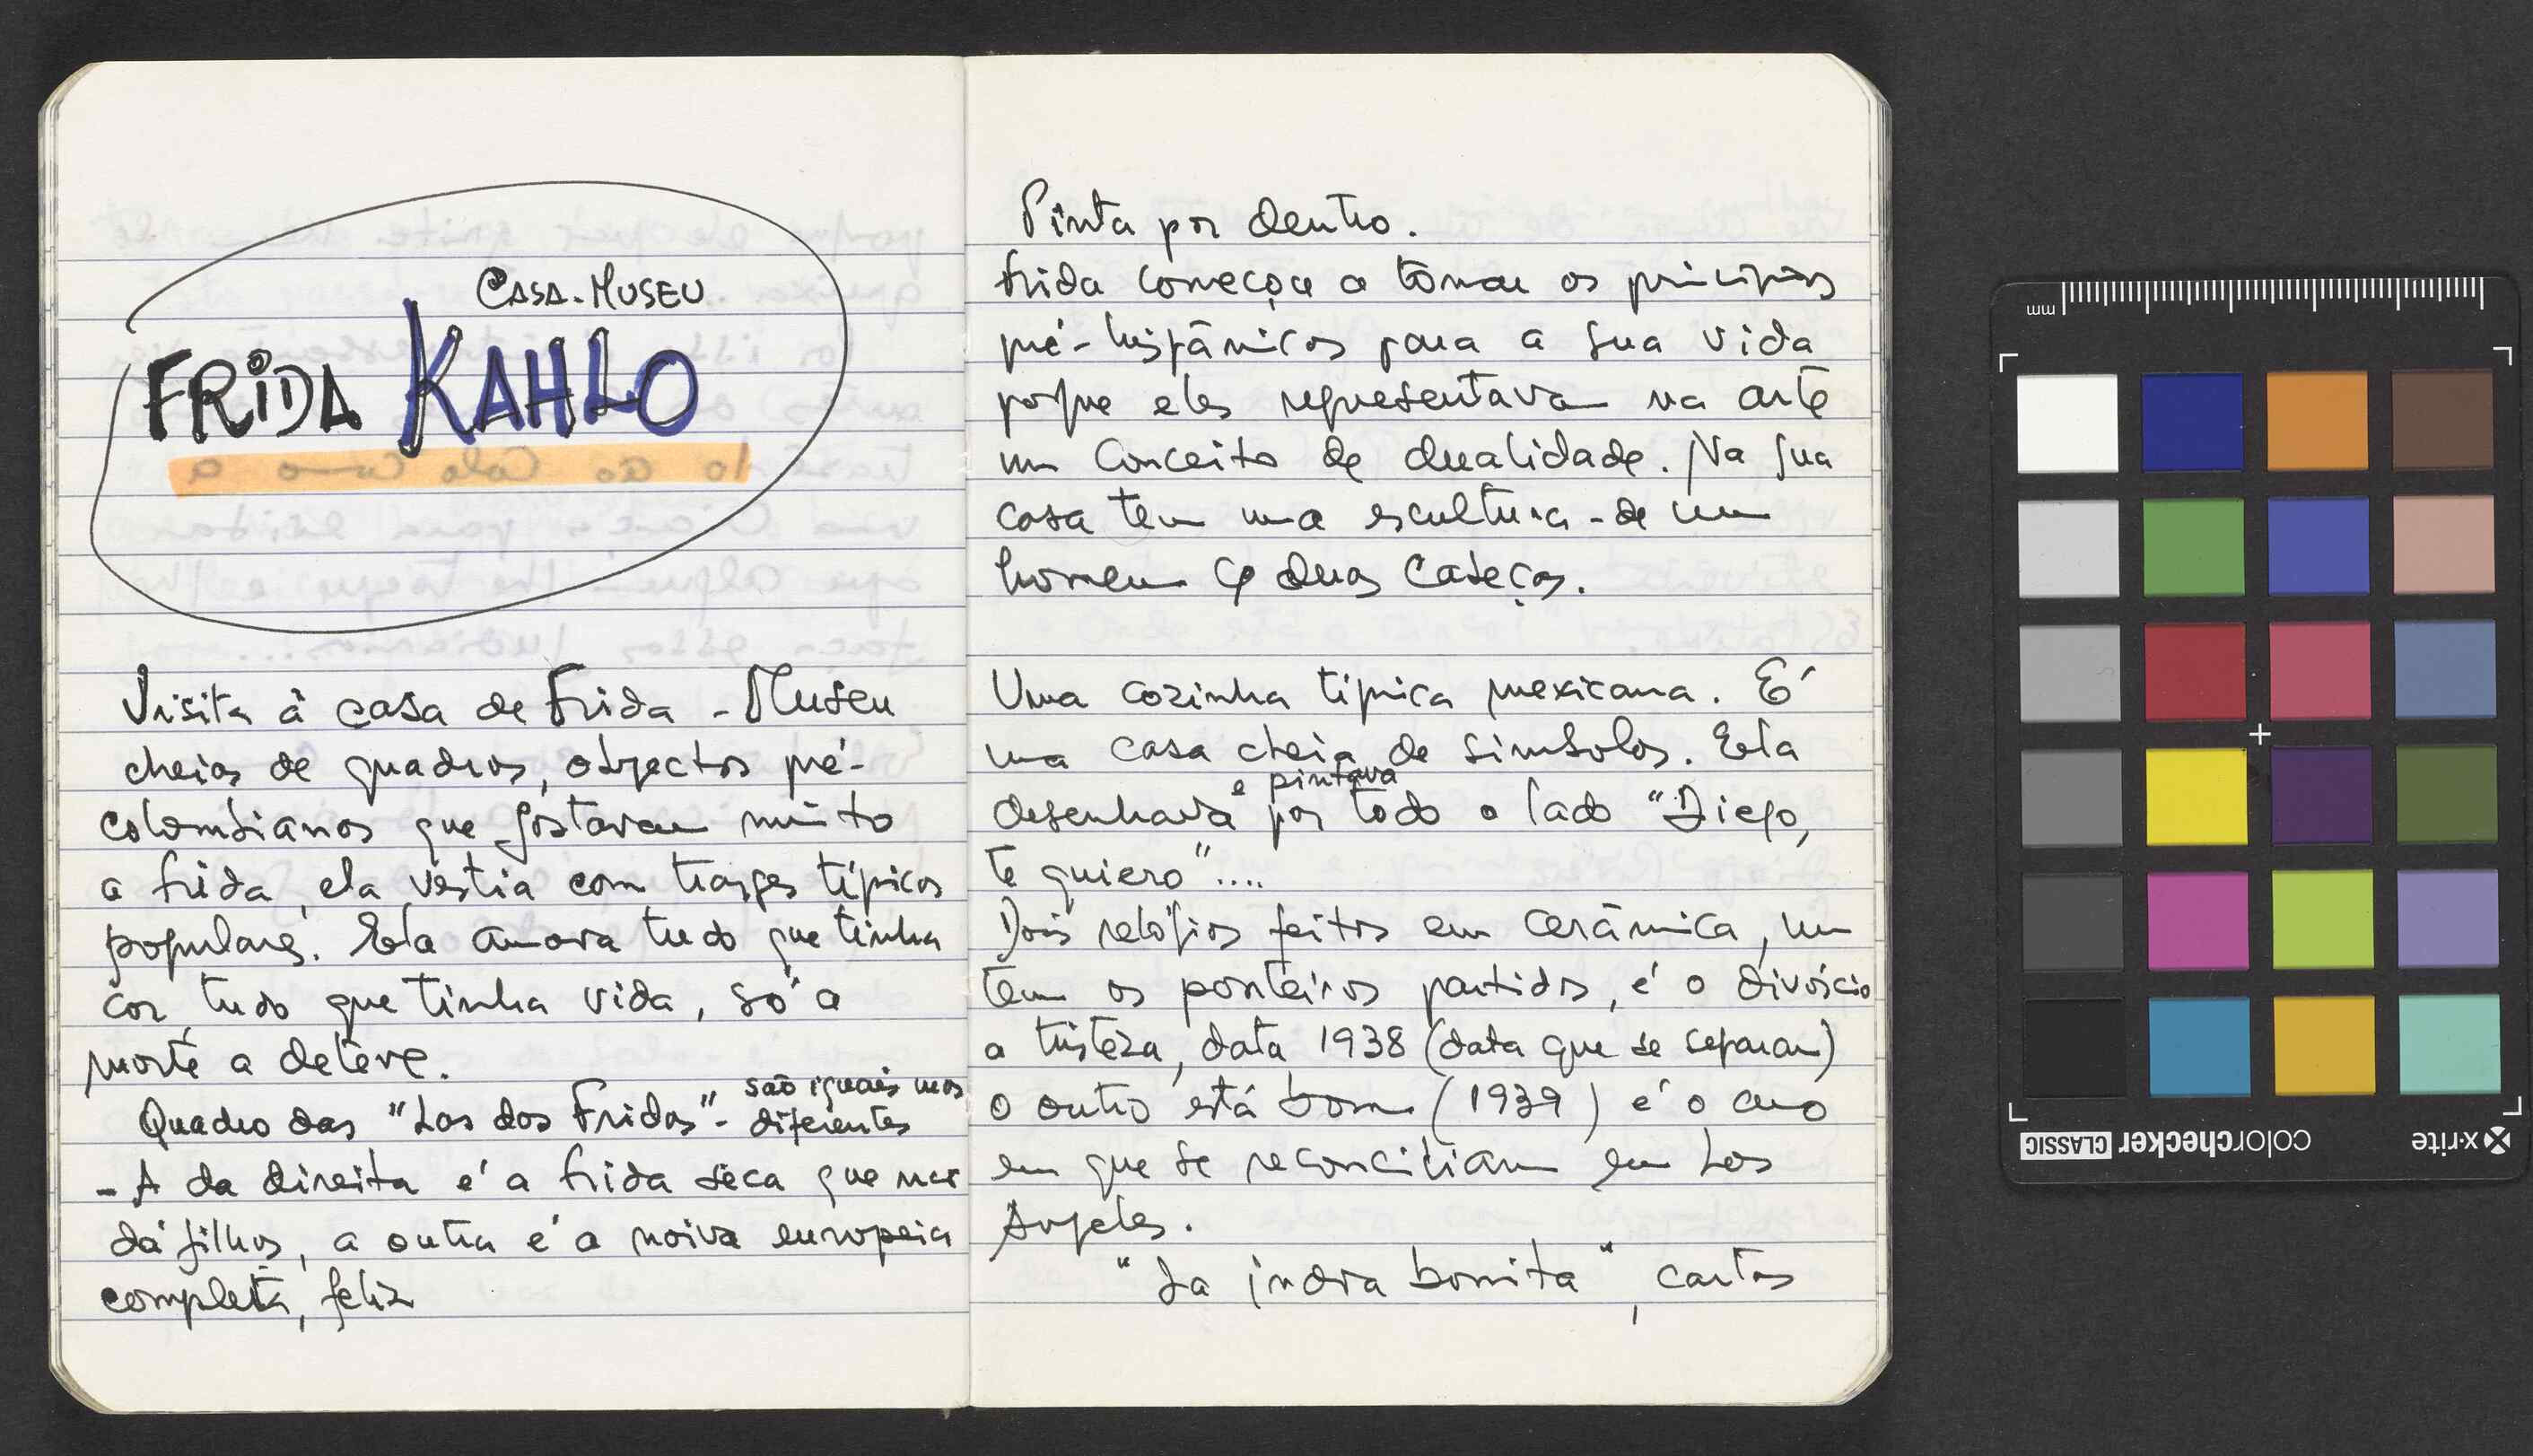 CASA-MUSEU
FRIDA KAHLO
Visita à casa de Frida - Museu
cheios de quadros, objectos pré-
colombianos que gostavam muito
a frida, ela vestia com trages típicos
populares. Ela amava tudo que tinha
cor, tudo que tinha vida, só a
morte a deteve.
Quadro das "Las dos Fridas" - são iguais mas
diferentes
- A da direita é a frida seca que não
dá filhos, a outra é a noiva europeia
completa, feliz
Pinta por dentro.
frida começou a tomar os princípios
pré-hispânicos para a sua vida
porque eles representavam na arte
um conceito de dualidade. Na sua
casa tem uma escultura - de um
homem c/ duas cabeças.
Uma cozinha típica mexicana. É
uma casa cheia de simbolos. Ela
e pintava
desenhava por todo o lado "Diego,
te quiero"....
Dois relógios feitos em cerâmica, um
tem os ponteiros partidos, é o divórcio
a tristeza, data 1938 (data que se separam)
o outro está bom (1939) é o ano
em que se reconciliam em Los
Angeles.
"La indra bonita", cartas
mm
colorchecker CLASSIC
x-rite